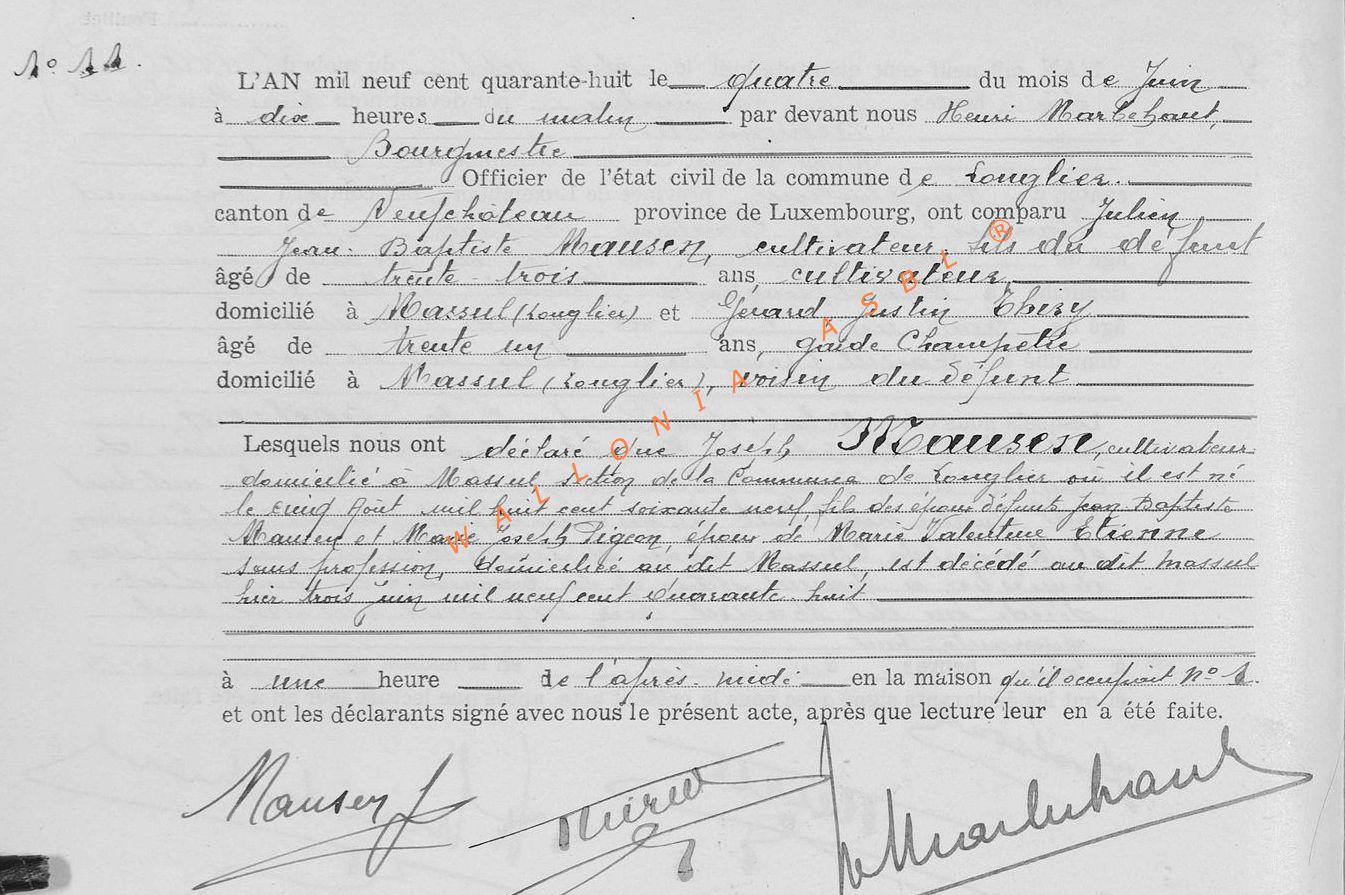 N° 11.
L'AN mil neuf cent quarante-huit le quatre du mois de Juin
à dix heures du matin par devant nous Henri Marbehant,
Bourgmestre
Officier de l'état civil de la commune de Longlier.
canton de Neufchâteau province de Luxembourg, ont comparu Julien
Jean-Baptiste Mausen, cultivateur, fils du défunt
âgé de trente-trois ans, cultivateur,
domicilié à Massul (Longlier) et Gérard Justin Thiry
âgé de trente un ans, garde Champêtre
domicilié à Massul (Longlier), voisin du défunt
Lesquels nous ont déclaré que Joseph Mausen, cultivateur
domicilié à Massul section de la Commune de Longlier où il est né
le cinq Août mil huit cent soixante neuf, fils des époux défunts Jean Baptiste
Mausen et Marie Joseph Pigeon, époux de Marie Valentine Etienne
sans profession, domiciliée au dit Massul, est décédé au dit Massul
hier trois juin mil neuf cent quarante-huit
à une heure de l'après-midi en la maison qu'il occupait N° 1.
et ont les déclarants signé avec nous le présent acte, après que lecture leur en a été faite.
Mausen J
WALLONIA ASBL ®